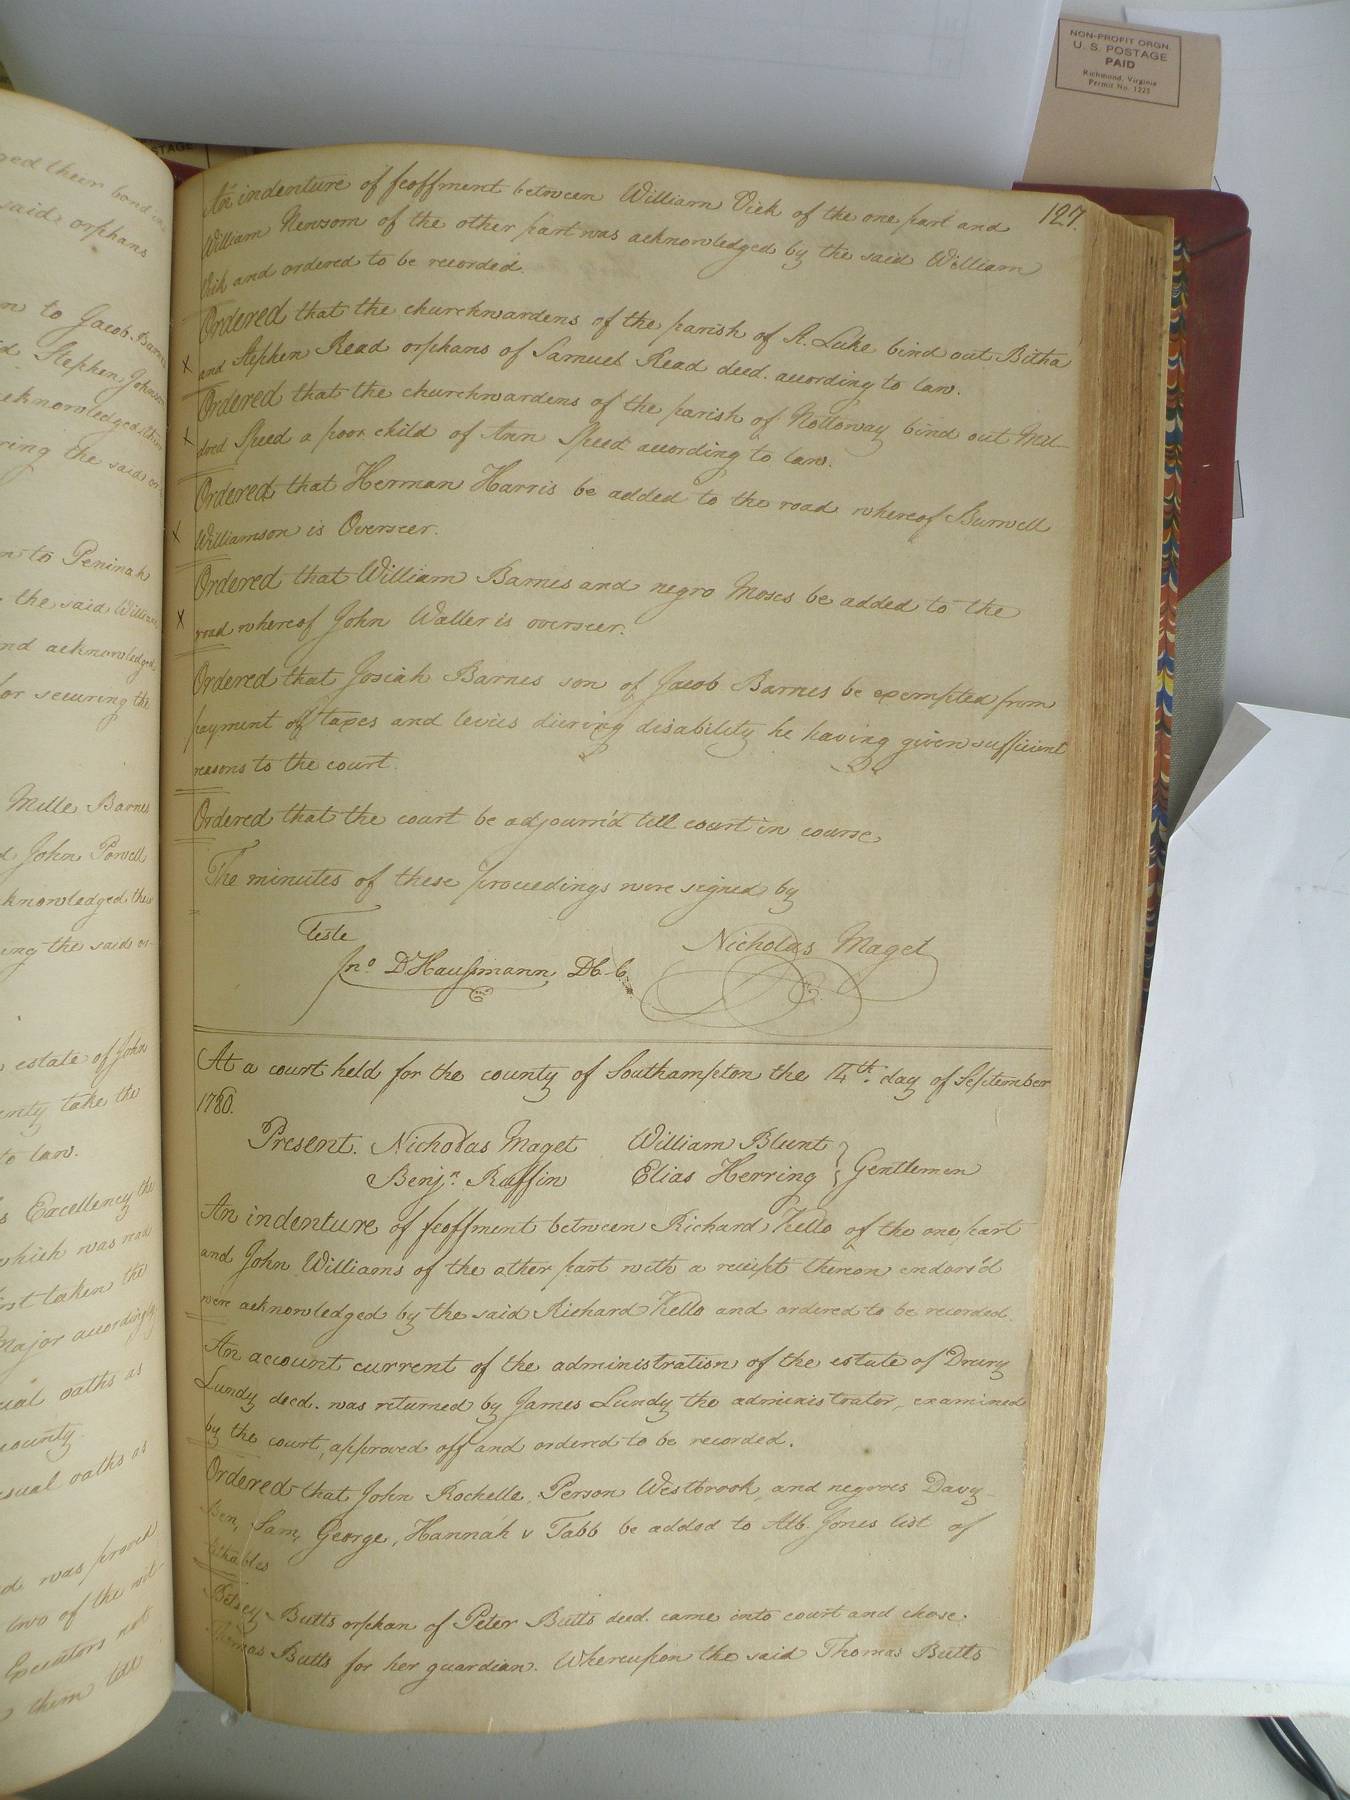 NON-PROFIT ORGN.
U. S. POSTAGE
PAID
Richmond, Virginia
Permit No. 1225
STAGE
127.
An indenture of feoffment between William Vick of the one part and
William Newsom of the other part was acknowledged by the said William
Vick and ordered to be recorded.
Ordered that the churchwardens of the parish of St. Luke bind out Bitha
X and Stephen Read orphans of Samuel Read deed. according to law.
Ordered that the churchwardens of the parish of Nottoway bind out Mil-
X dred Speed a poor child of Ann Speed according to law.
Ordered that Herman Harris be added to the road whereof Burwell
X Williamson is Overseer.
Ordered that William Barnes and negro Moses be added to the
X road whereof John Waller is overseer.
Ordered that Josiah Barnes son of Jacob Barnes be exempted from
payment of taxes and levies duering disability he having given sufficient
reasons to the court.
Ordered that the court be adjourn'd till court in course
The minutes of these proceedings were signed by
Teste
Nicholas Maget
Jno. D Haussmann, D C. C.
At a court held for the county of Southampton the 14th. day of September
1780.
Present. Nicholas Maget William Blunt
Benjn. Ruffin Elias Herring } Gentlemen
An indenture of feoffment between Richard Kello of the one part
and John Williams of the other part with a receipt thereon endors'd
were acknowledged by the said Richard Kello and ordered to be recorded.
An account current of the administration of the estate of Drury
Lundy deed. was returned by James Lundy the administrator, examined
by the court, approved off and ordered to be recorded.
Ordered that John Rochelle, Person Westbrook, and negroes Davy
Ben, Sam, George, Hannah & Tabb be added to Alb. Jones list of
tithables
Betsey Butts orphan of Peter Butts deed. came into court and chose
Thomas Butts for her guardian. Whereupon the said Thomas Butts
ged their bond
said orphans
n to Jacob Barnes
d Stephen Johnson
acknowledged
ring the said or
n to Peninah
the said William
nd acknowledged
for securing the
Mille Barnes
d John Powell
knowledged their
ing the said or-
estate of John
enty take the
to law.
s Excellency the
which was now
rst taken the
Major accordingly
ual oaths as
county.
usual oaths as
d was proved
two of the wit-
Executors not
them till